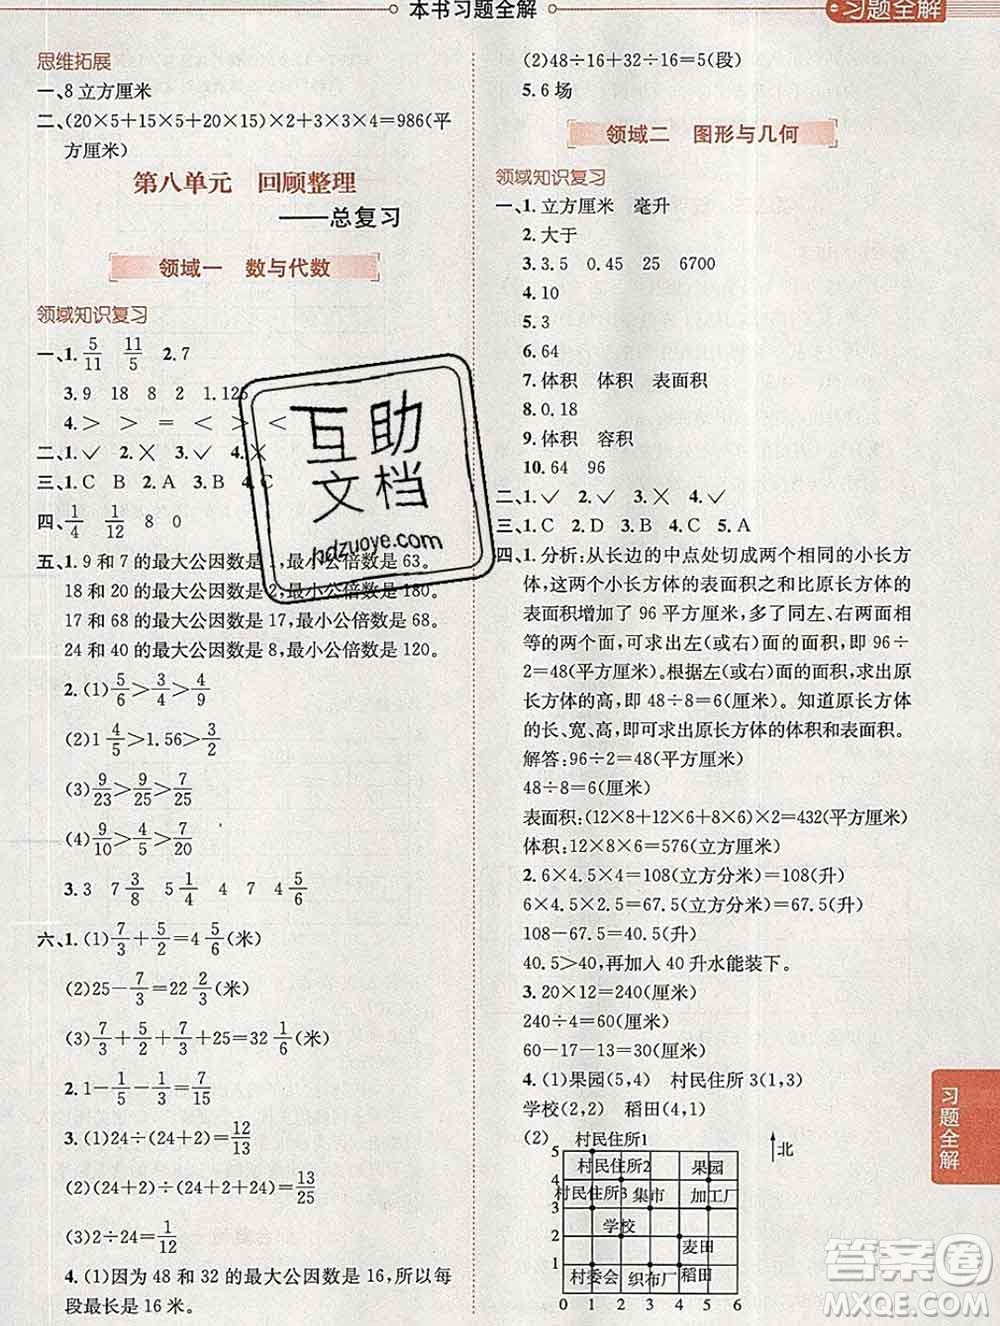 本书习题全解
习题全解
思维拓展
一、8立方厘米
二、(20×5+15×5+20×15)×2+3×3×4=986(平
方厘米)
第八单元 回顾整理
——总复习
领域一 数与代数
领域知识复习
一、1. 5/11 11/5 2. 7
3. 9 18 8 2 1.125
4. > > = < > <
二、1. ✓ 2. ✕ 3. ✓ 4. ✕
三、1. C B 2. A 3. B 4. C
四、1/4 1/12 8 0
五、1. 9和7的最大公因数是1,最小公倍数是63。
18和20的最大公因数是2,最小公倍数是180。
17和68的最大公因数是17,最小公倍数是68。
24和40的最大公因数是8,最小公倍数是120。
2. (1)5/6>3/4>4/9
(2)1 4/5>1.56>3/2
(3)9/23>9/25>7/25
(4)9/10>4/5>7/20
3. 3 7 3/8 5 1/4 4 7 4 5/6
六、1. (1)7/3+5/2=4 5/6(米)
(2)25-7/3=22 2/3(米)
(3)7/3+5/2+7/3+25=32 1/6(米)
2. 1-1/5-1/3=7/15
3. (1)24÷(24+2)=12/13
(2)(24+2)÷(24+2+24)=13/25
(3)2÷24=1/12
4. (1)因为48和32的最大公因数是16,所以每
段最长是16米。
(2)48÷16+32÷16=5(段)
5. 6场
领域二 图形与几何
领域知识复习
一、1. 立方厘米 毫升
2. 大于
3. 3.5 0.45 25 6700
4. 10
5. 3
6. 64
7. 体积 体积 表面积
8. 0.18
9. 体积 容积
10. 64 96
二、1. ✓ 2. ✓ 3. ✕ 4. ✓
三、1. C 2. D 3. B 4. C 5. A
四、1. 分析:从长边的中点处切成两个相同的小长方
体,这两个小长方体的表面积之和比原长方体的
表面积增加了96平方厘米,多了同左、右两面相
等的两个面,可求出左(或右)面的面积,即96÷
2=48(平方厘米)。根据左(或右)面的面积,可求出原
长方体的高,即48÷8=6(厘米)。知道原长方体
的长、宽、高,即可求出原长方体的体积和表面积。
解答:96÷2=48(平方厘米)
48÷8=6(厘米)
表面积:(12×8+12×6+8×6)×2=432(平方厘米)
体积:12×8×6=576(立方厘米)
2. 6×4.5×4=108(立方分米)=108(升)
6×4.5×2.5=67.5(立方分米)=67.5(升)
108-67.5=40.5(升)
40.5>40,再加入40升水能装下。
3. 20×12=240(厘米)
240÷4=60(厘米)
60-17-13=30(厘米)
4. (1)果园(5,4) 村民住所3(1,3)
学校(2,2) 稻田(4,1)
(2) 村民住所1
北
5
村民住所2 果园
4
村民住所3 集市 加工厂
3
学校
2
麦田
1
村委会 织布厂 稻田
0 1 2 3 4 5 6
习题全解
互助
文档
hdzuoye.com
答案圈
MXQE.COM